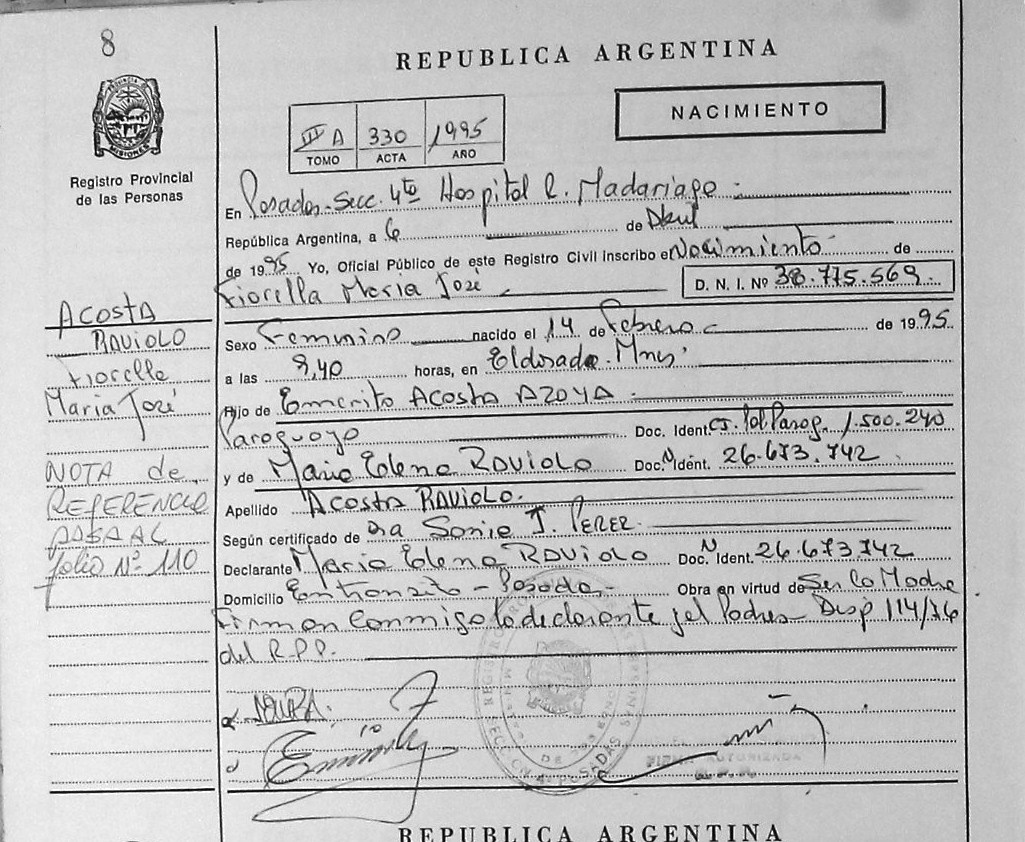 8
REPUBLICA ARGENTINA
NACIMIENTO
III A 330 1995
TOMO ACTA AÑO
PROVINCIA DE MISIONES
Registro Provincial
de las Personas
En Posadas-Secc. 4ta Hospital R. Madariaga
República Argentina, a 6 de Abril
de 1995 Yo, Oficial Público de este Registro Civil inscribo el Nacimiento de
Fiorella María José D. N. I. Nº 38.775.569
Sexo Femenino nacido el 14 de Febrero de 1995
a las 8,40 horas, en Eldorado. Mnes.
Hijo de Emerito Acosta AZOYA
Paraguayo Doc. Ident. Pol Parag. 1.500.240
y de Maria Elena RAVIOLO Doc. N Ident. 26.673.742
Apellido Acosta RAVIOLO.
Según certificado de Dra Sonia J. PEREZ
Declarante Maria Elena RAVIOLO Doc. N Ident. 26.673.742
Domicilio En transito - Posadas - Obra en virtud de Ser la Madre
Firman conmigo la declarante y el Padre Disp 114/76
del R.P.P.
ACOSTA
RAVIOLO
Fiorella
María José
NOTA de
REFERENCIA
PASA AL
folio Nº 110
REPUBLICA ARGENTINA